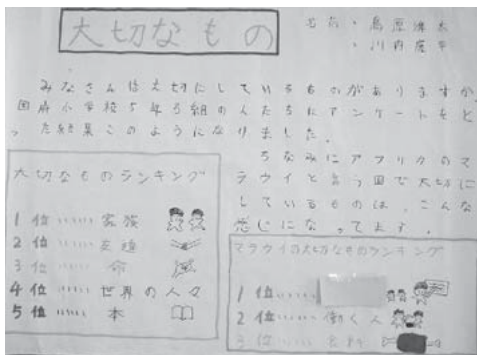 大切なもの
名前・島原
・川内
みなさんは大切にしているものがありますか。
国府小学校5年3組の人たちにアンケートをと
った結果このようになりました。
ちなみにアフリカのマ
ラウイと言う国で大切に
しているものは、こんな
感じになってます。
大切なものランキング
1位……家族
2位……友達
3位……命
4位……世界の人々
5位……本
マラウイの大切なものランキング
1位……
2位……働く人
3位……食料